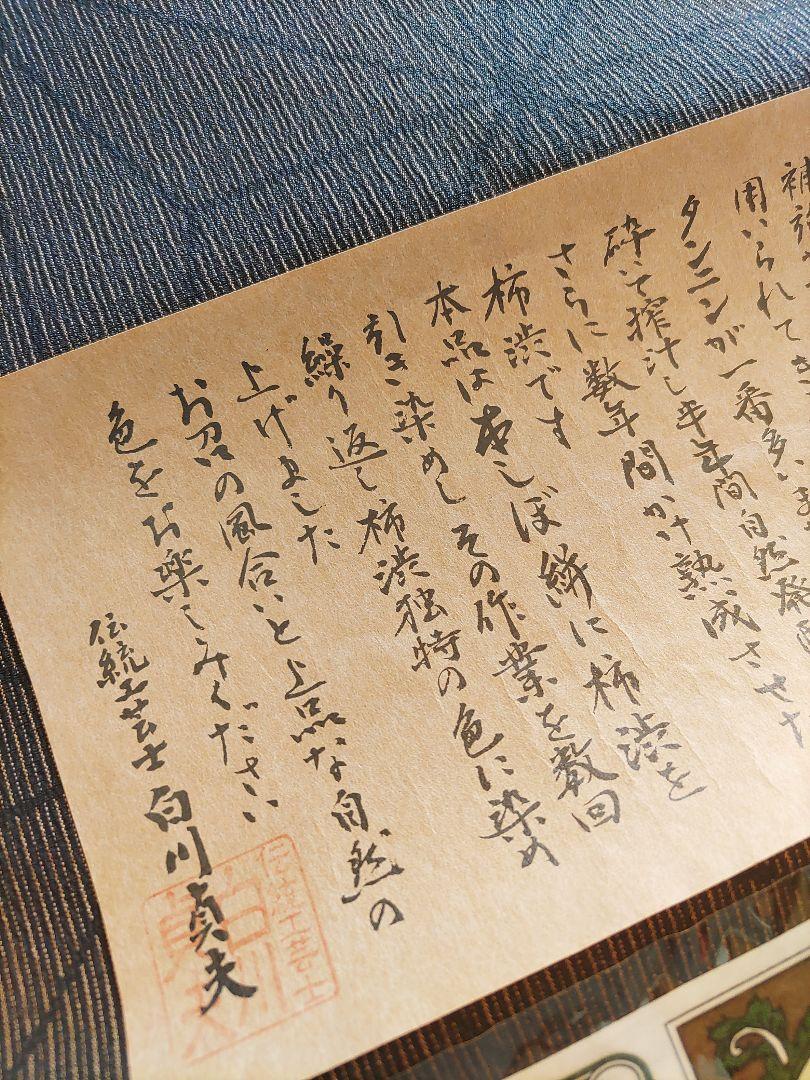 用いられてき
タンニンが一番多い
砕いて搾汁し半年間自然発
さらに数年間かけ熟成させた
柿渋です
本品は本しぼ絣に柿渋を
引き染めし その作業を数回
繰り返し柿渋独特の色に染め
上げました
お召の風合いと上品な自然の
色をお楽しみください
伝統工芸士 白川貞夫
伝統工芸士